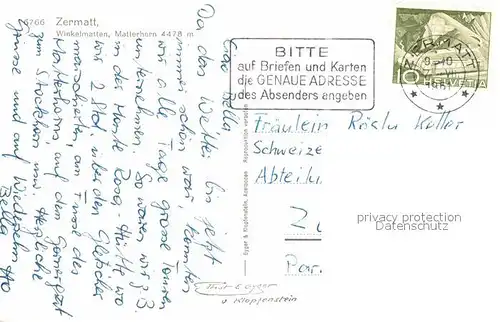 6766 Zermatt,
Winkelmatten, Matterhorn 4478 m
Ciao Bella
Da das Wetter bis jetzt
immer schön war, konnten
wir alle Tage grosse Touren
unternehmen. So waren wir z.B.
in der Monte Rosa-Hütte wo
wir 2 Std. über den Gletscher
marschierten, am Fusse des
Matterhorns, auf dem Gornergrat
zum Stockhorn usw. Herzliche
Grüsse und auf Wiedersehn
Bella
Gyger & Klopfenstein, Adelboden Reproduktion verboten
BITTE
auf Briefen und Karten
die GENAUE ADRESSE
des Absenders angeben
ZERMATT
1961
10
HELVETIA
Fräulein Rösly Keller
Schweize
Abteilu
Z
Par.
privacy protection
Datenschutz
Gyger
u Klopfenstein